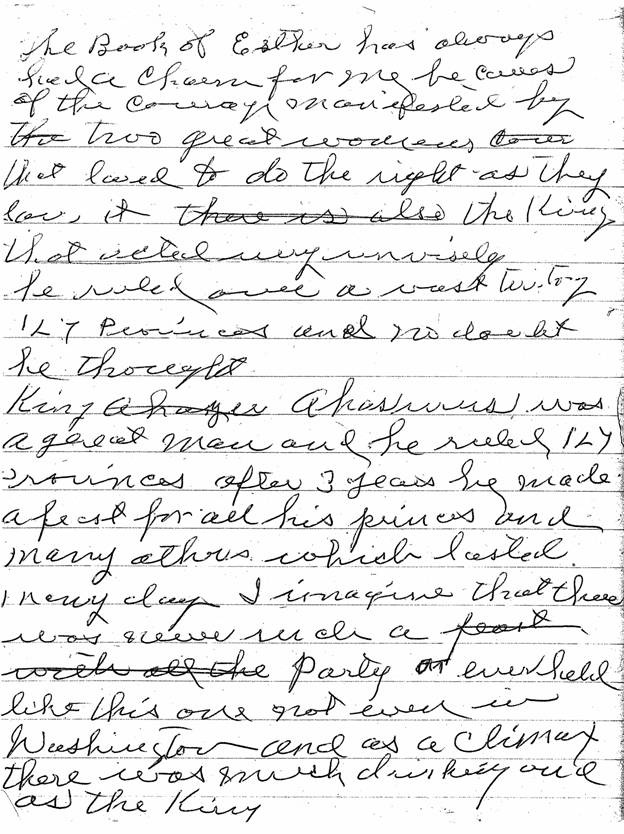 The Book of Esther has always
had a charm for me because
of the courage manifested by
the two great womens
that loved to do the right as they
saw it there is also the King
that acted very unwisely
he ruled over a vast
127 Provinces and no doubt
he thought
King Ahasuerus was
a great man and he ruled 127
provinces after 3 years he made
a feast for all his princes and
many others which lasted
many days I imagine that there
was never such a feast
with all the Party or ever held
like this one not even in
Washington and as a climax
there was much drinking and
as the King